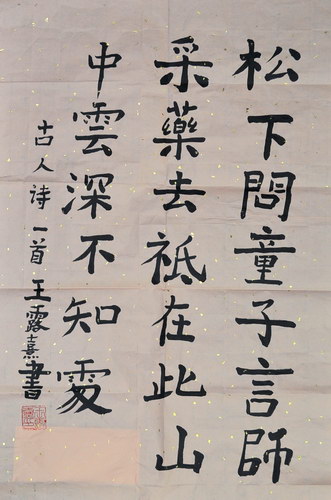 松下問童子言師
采藥去祗在此山
中雲深不知處
古人诗一首王露熹書